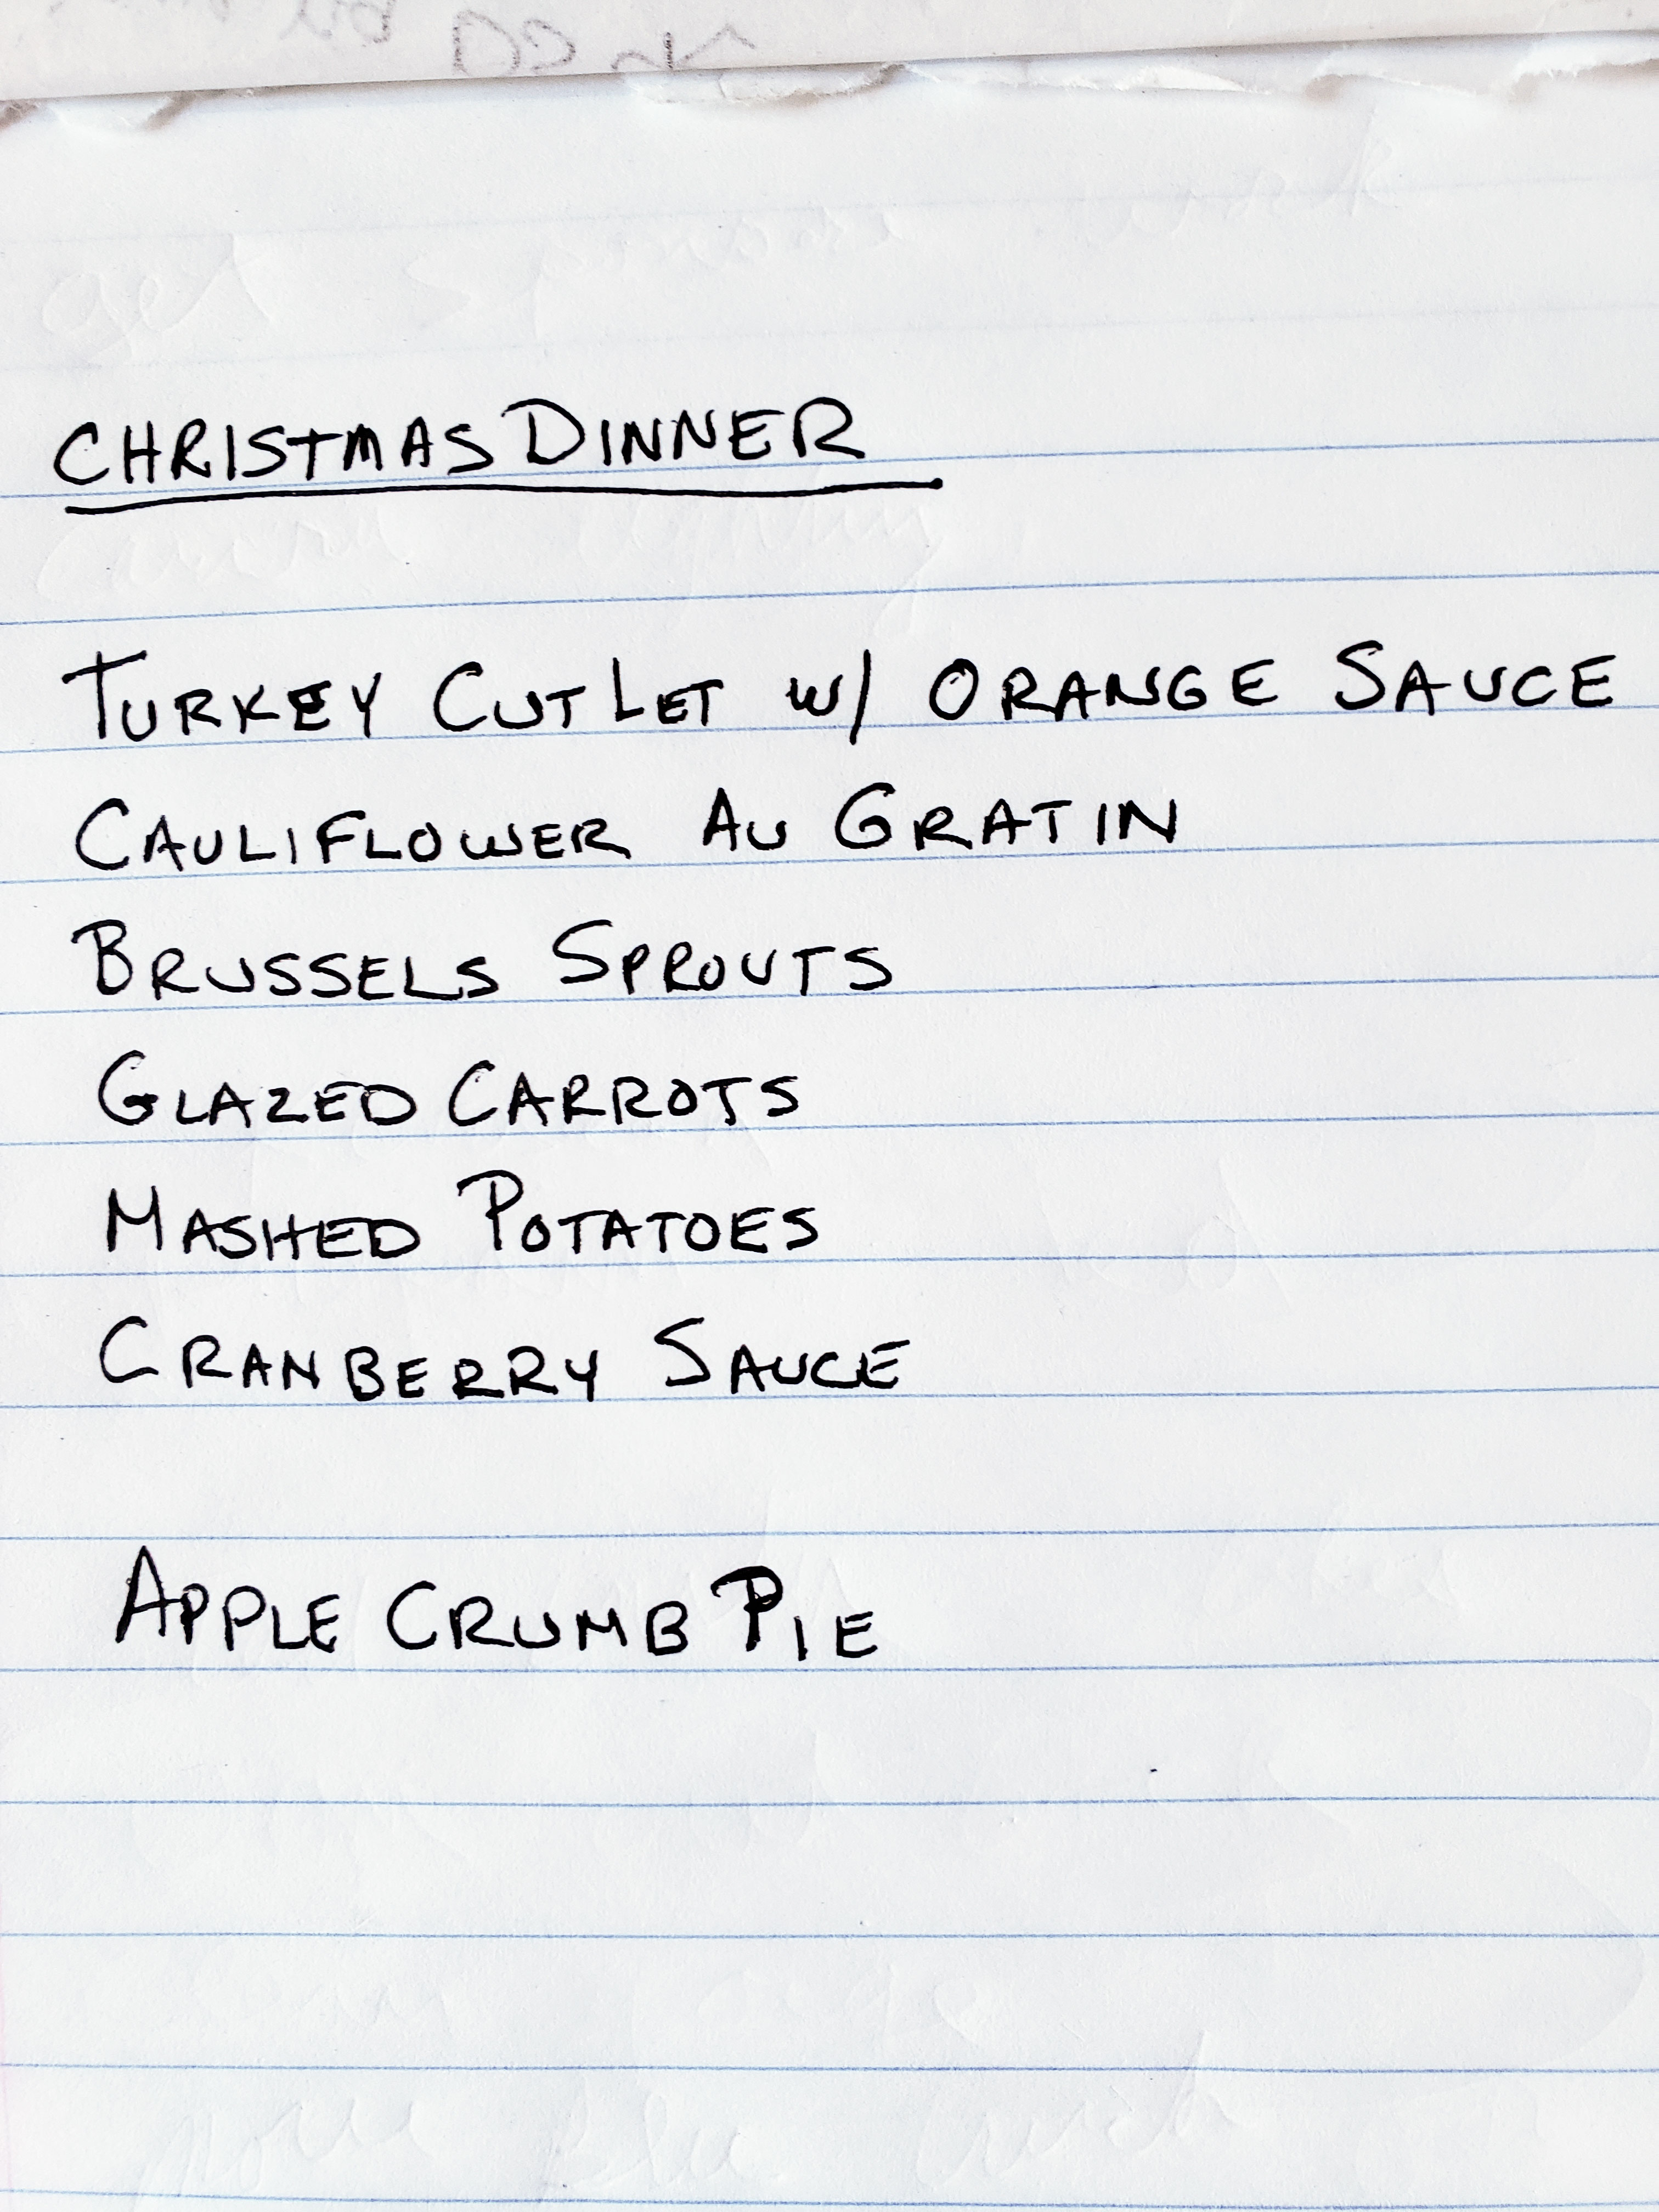 CHRISTMAS DINNER
TURKEY CUTLET W/ ORANGE SAUCE
CAULIFLOWER AU GRATIN
BRUSSELS SPROUTS
GLAZED CARROTS
MASHED POTATOES
CRANBERRY SAUCE
APPLE CRUMB PIE